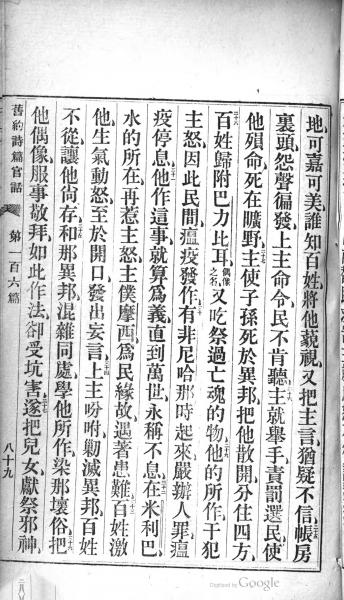 地可嘉可美誰知百姓將他藐視又把主言猶疑不信帳房
裏頭怨聲徧發上主命令民不肯聽主就舉手責罰選民使
他殞命死在曠野主使子孫死於異邦把他散開分住四方
百姓歸附巴力比耳偶像之名又吃祭過亡魂的物他的所作干犯
主怒因此民間瘟疫發作有非尼哈那時起來嚴辦人罪瘟
疫停息他作這事就算爲義直到萬世永稱不息在米利巴
水的所在再惹主怒主僕摩西爲民緣故遇著患難百姓激
他生氣動怒至於開口發出妄言上主吩咐勦滅異邦百姓
不從讓他尙存和那異邦混雜同處學他所作染那壞俗把
他偶像服事敬拜如此作法卻受坑害遂把兒女獻祭邪神
舊約詩篇官話 第一百六篇 八十九
Digitized by Google